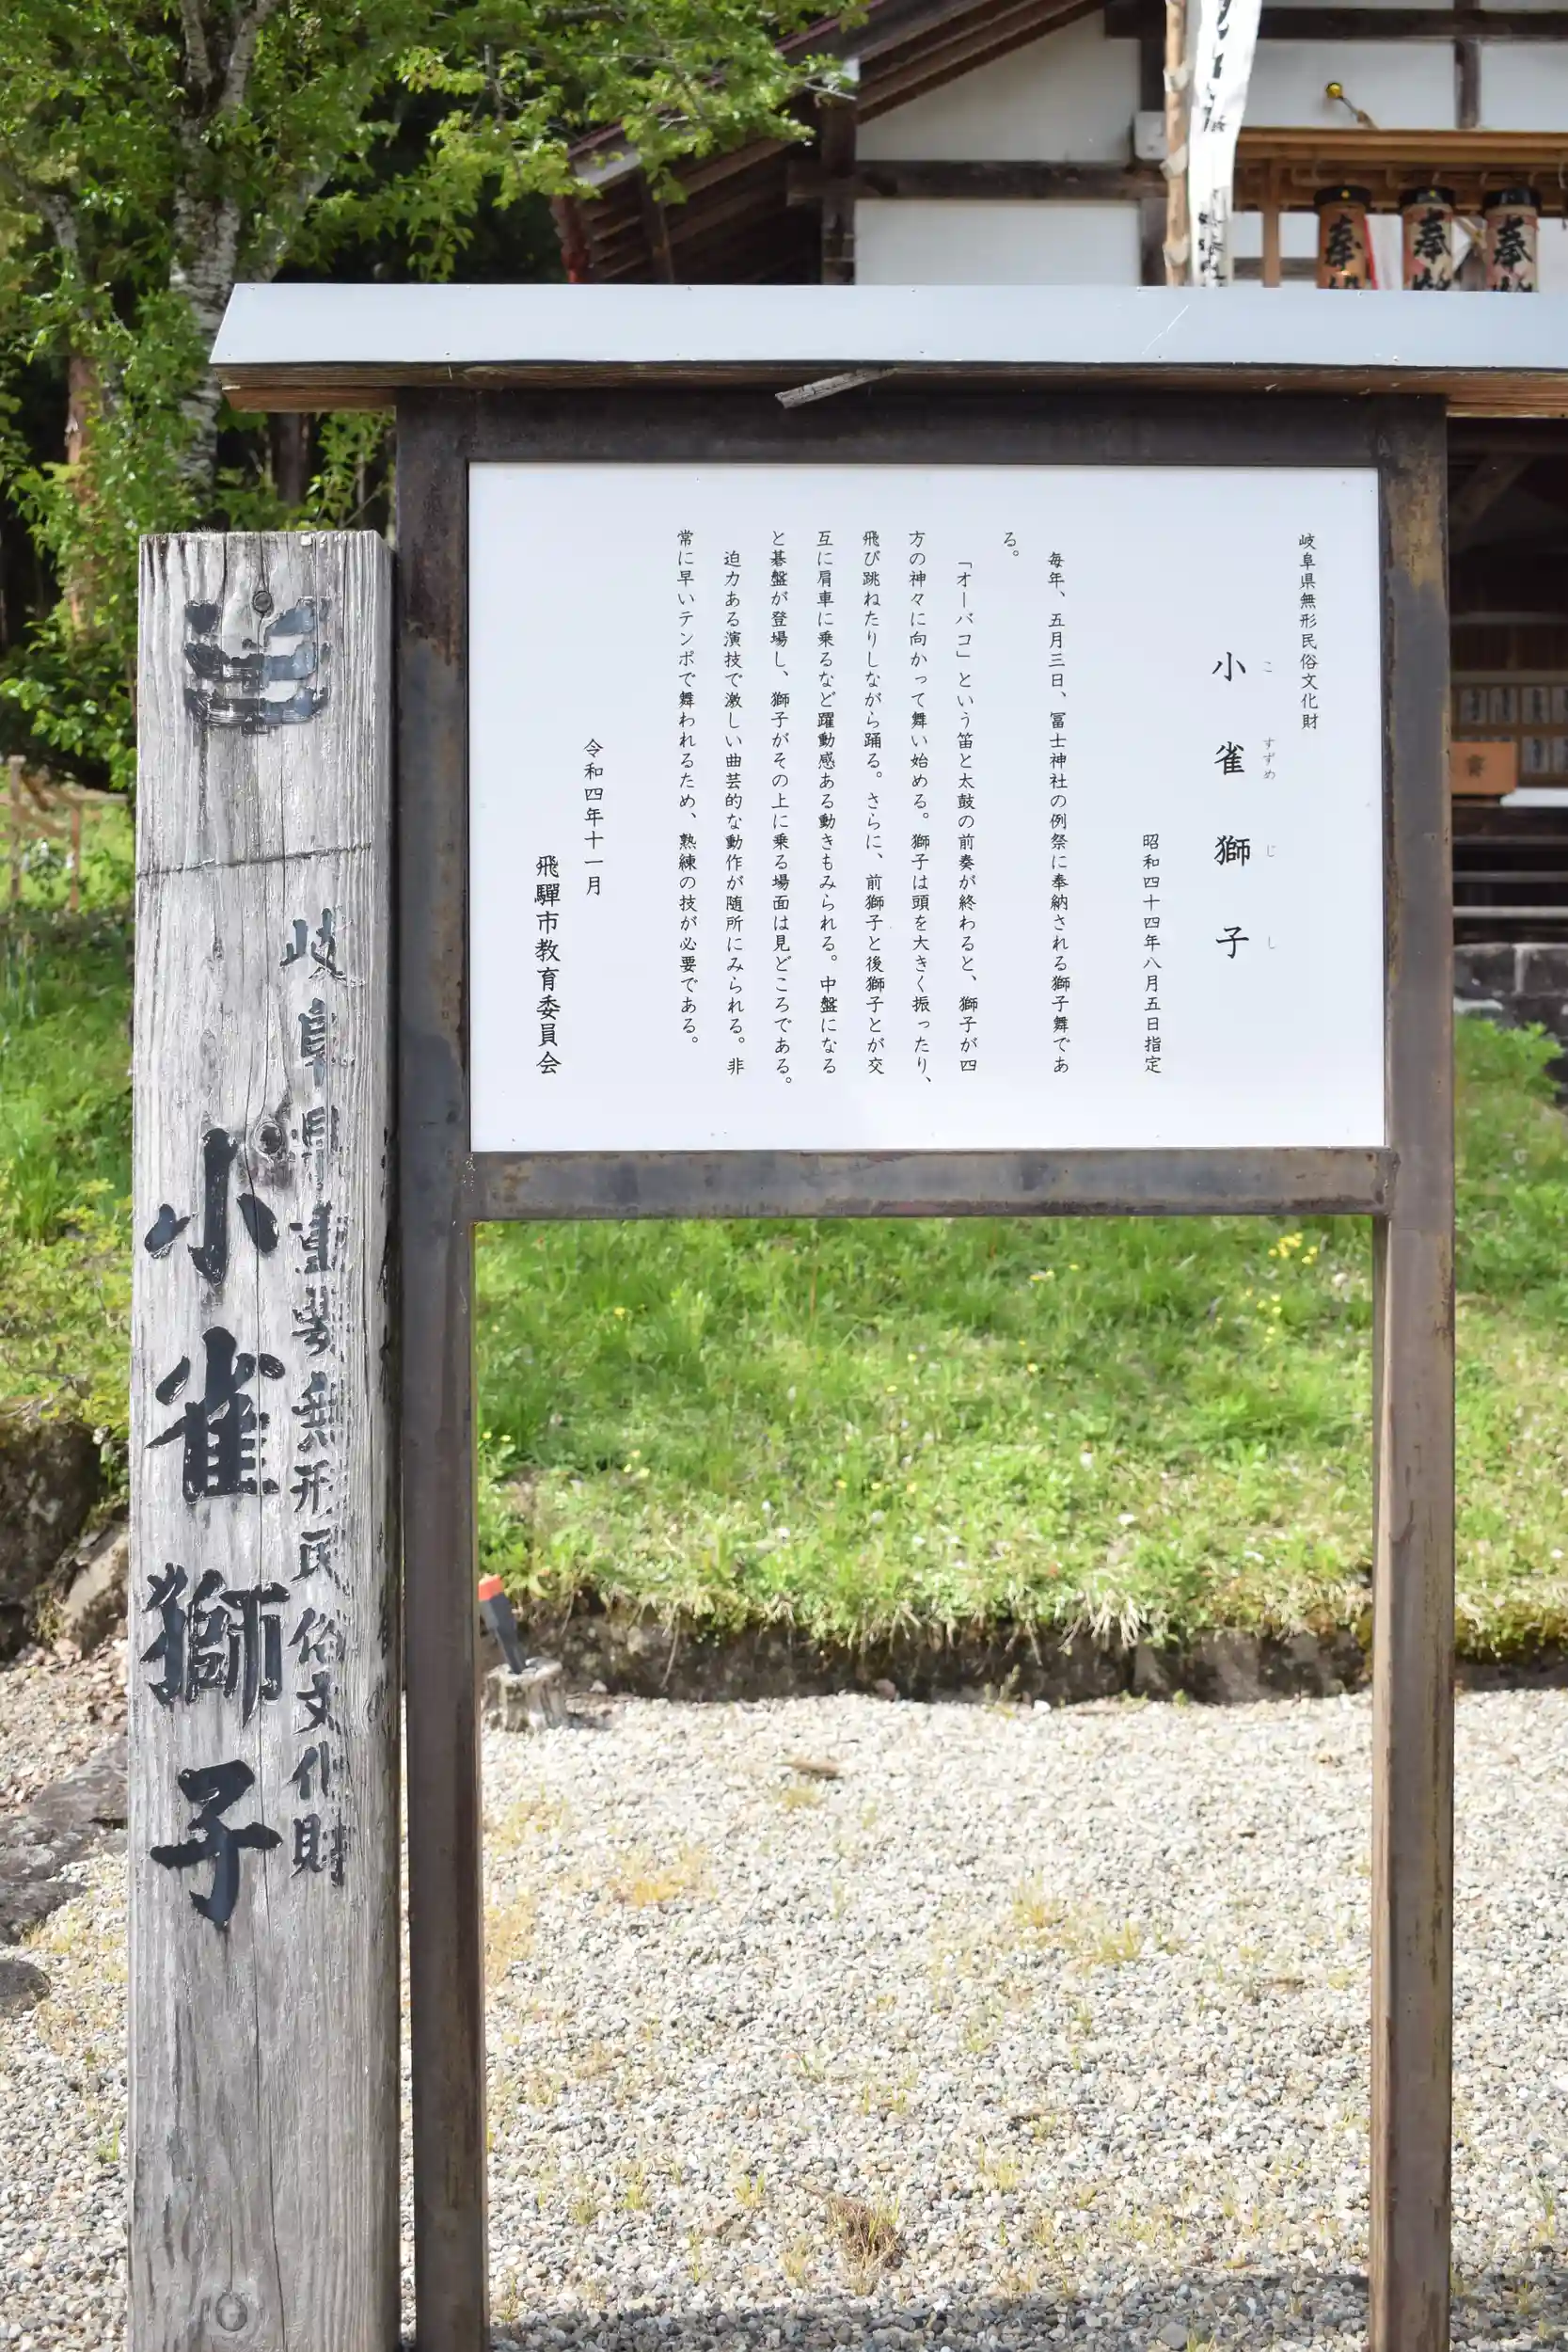 岐阜県無形民俗文化財
小雀獅子
こすずめじし
昭和四十四年八月五日指定
毎年、五月三日、冨士神社の例祭に奉納される獅子舞であ
る。
「オーバコ」という笛と太鼓の前奏が終わると、獅子が四
方の神々に向かって舞い始める。獅子は頭を大きく振ったり、
飛び跳ねたりしながら踊る。さらに、前獅子と後獅子とが交
互に肩車に乗るなど躍動感ある動きもみられる。中盤になる
と碁盤が登場し、獅子がその上に乗る場面は見どころである。
迫力ある演技で激しい曲芸的な動作が随所にみられる。非
常に早いテンポで舞われるため、熟練の技が必要である。
令和四年十一月
飛驒市教育委員会
岐阜県重要無形民俗文化財
小雀獅子
奉
奉
奉